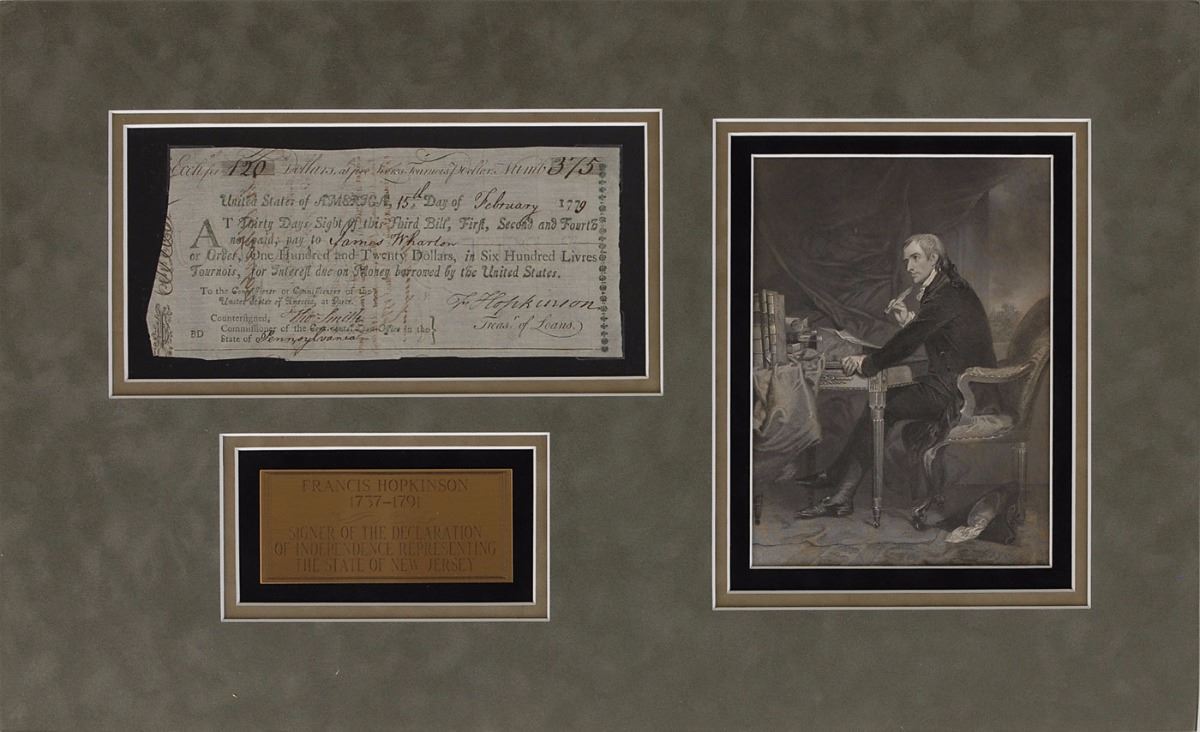 Exch. for 120 Dollars, at five Livres Tournois Dollar Numb 375
United States of AMERICA, 15th Day of February 1779
AT Thirty Days Sight of this Third Bill, First, Second and Fourth
not paid, pay to James Wharton
or Order, One Hundred and Twenty Dollars, in Six Hundred Livres
Tournois, for Interest due on Money borrowed by the United States.
To the Commissioner or Commissioners of the
United States of America, at Paris.
Countersigned, Tho Smith
Commissioner of the Continental Loan-Office in the
State of Pennsylvania
BD
F Hopkinson
Treasr. of Loans.
FRANCIS HOPKINSON
1737-1791
SIGNER OF THE DECLARATION
OF INDEPENDENCE REPRESENTING
THE STATE OF NEW JERSEY